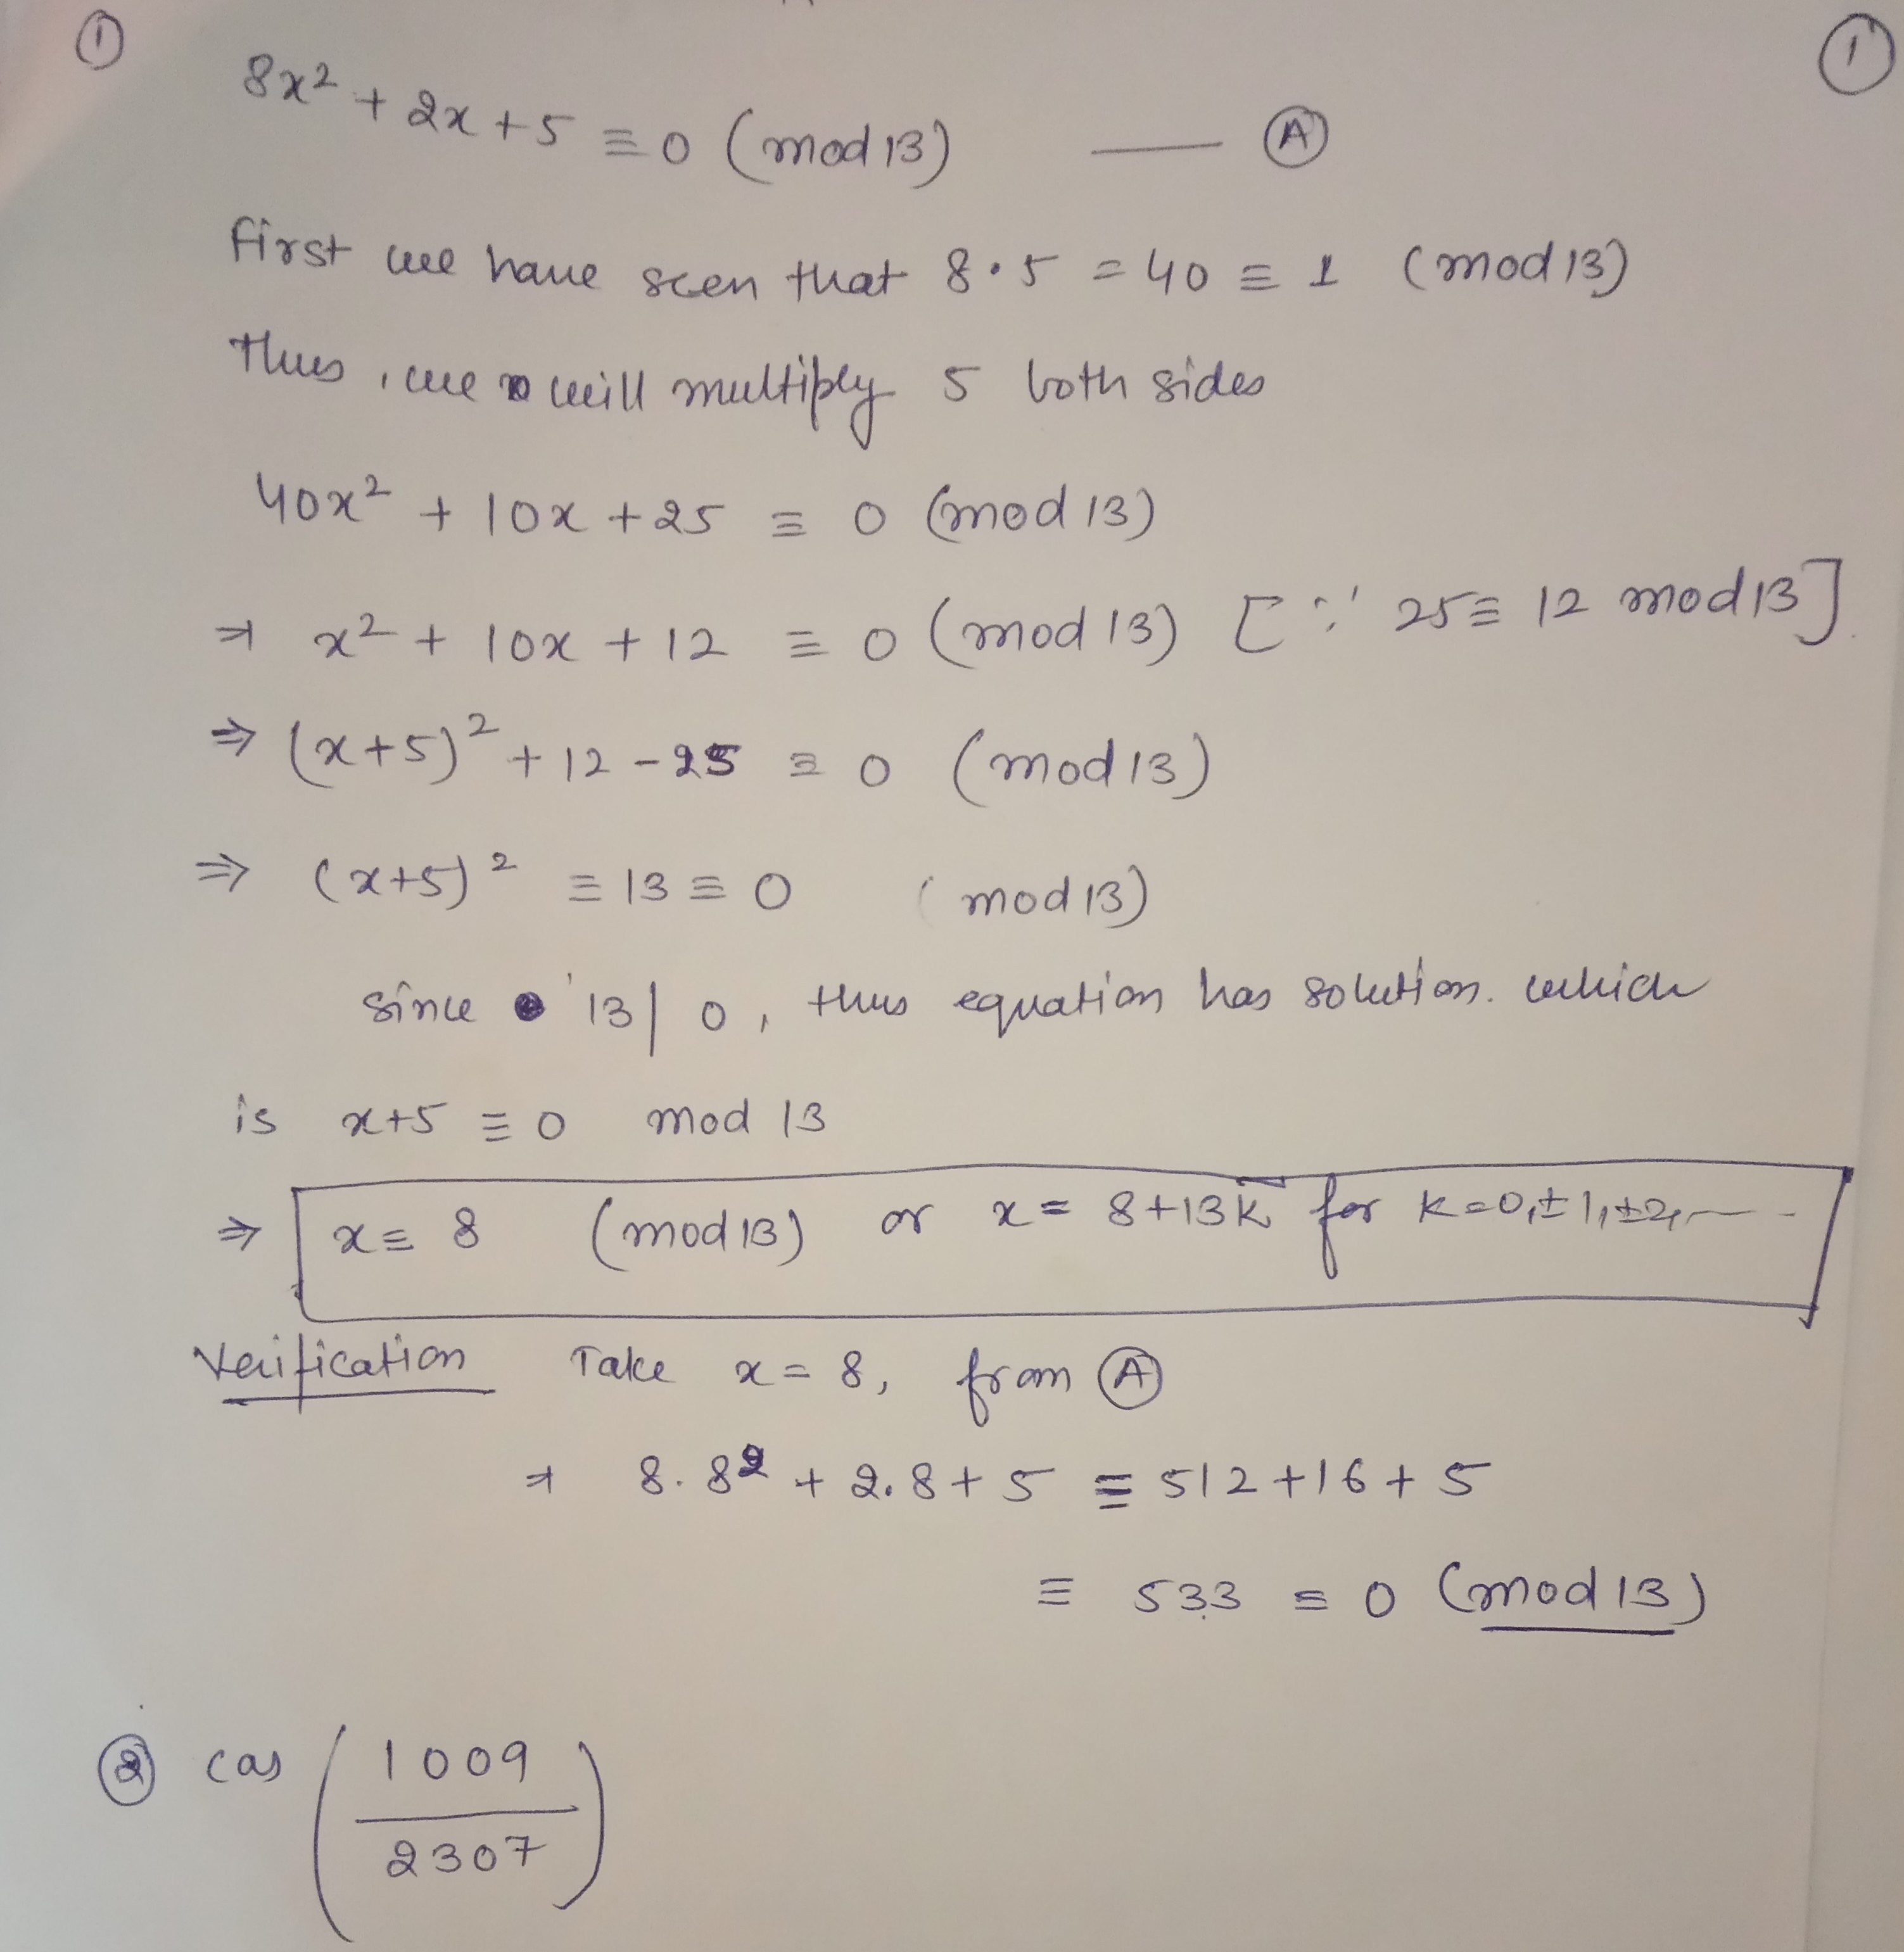 ① ①
8x² + 2x + 5 ≡ 0 (mod 13) —— Ⓐ
First we have seen that 8·5 = 40 ≡ 1 (mod 13)
thus, we will multiply 5 both sides
40x² + 10x + 25 ≡ 0 (mod 13)
⇒ x² + 10x + 12 ≡ 0 (mod 13) [∵ 25 ≡ 12 mod 13]
⇒ (x+5)² + 12 - 25 ≡ 0 (mod 13)
⇒ (x+5)² ≡ 13 ≡ 0 (mod 13)
since 13 | 0, thus equation has solution. which
is x+5 ≡ 0 mod 13
⇒ x ≡ 8 (mod 13) or x = 8+13k for k=0,±1,±2,---
Verification Take x = 8, from Ⓐ
⇒ 8.8² + 2.8 + 5 ≡ 512 + 16 + 5
≡ 533 ≡ 0 (mod 13)
② (a) (1009/2307)